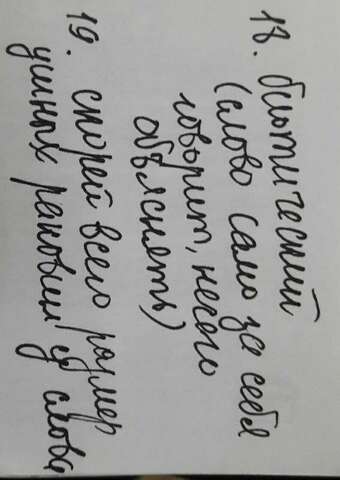 18. биотический
(слово само за себя
говорит, нечего
объяснять)
19. скорей всего размер
ушных раковин у слова